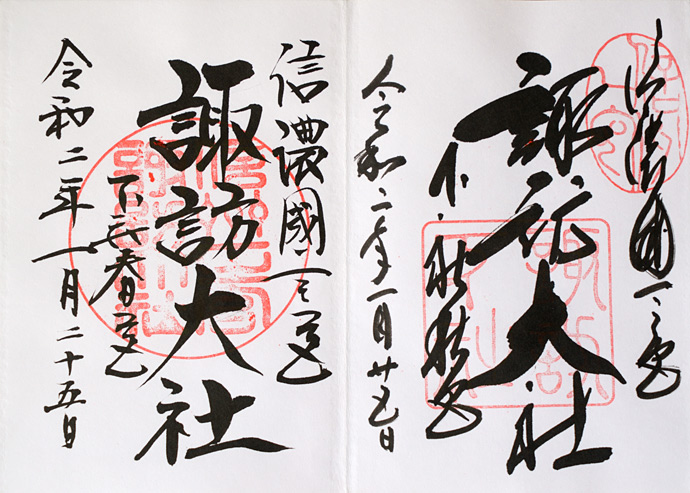 信濃國一之宮
諏訪大社
下社秋宮
令和二年一月廿五日
信濃國一之宮
諏訪大社
下社春宮
令和二年一月二十五日